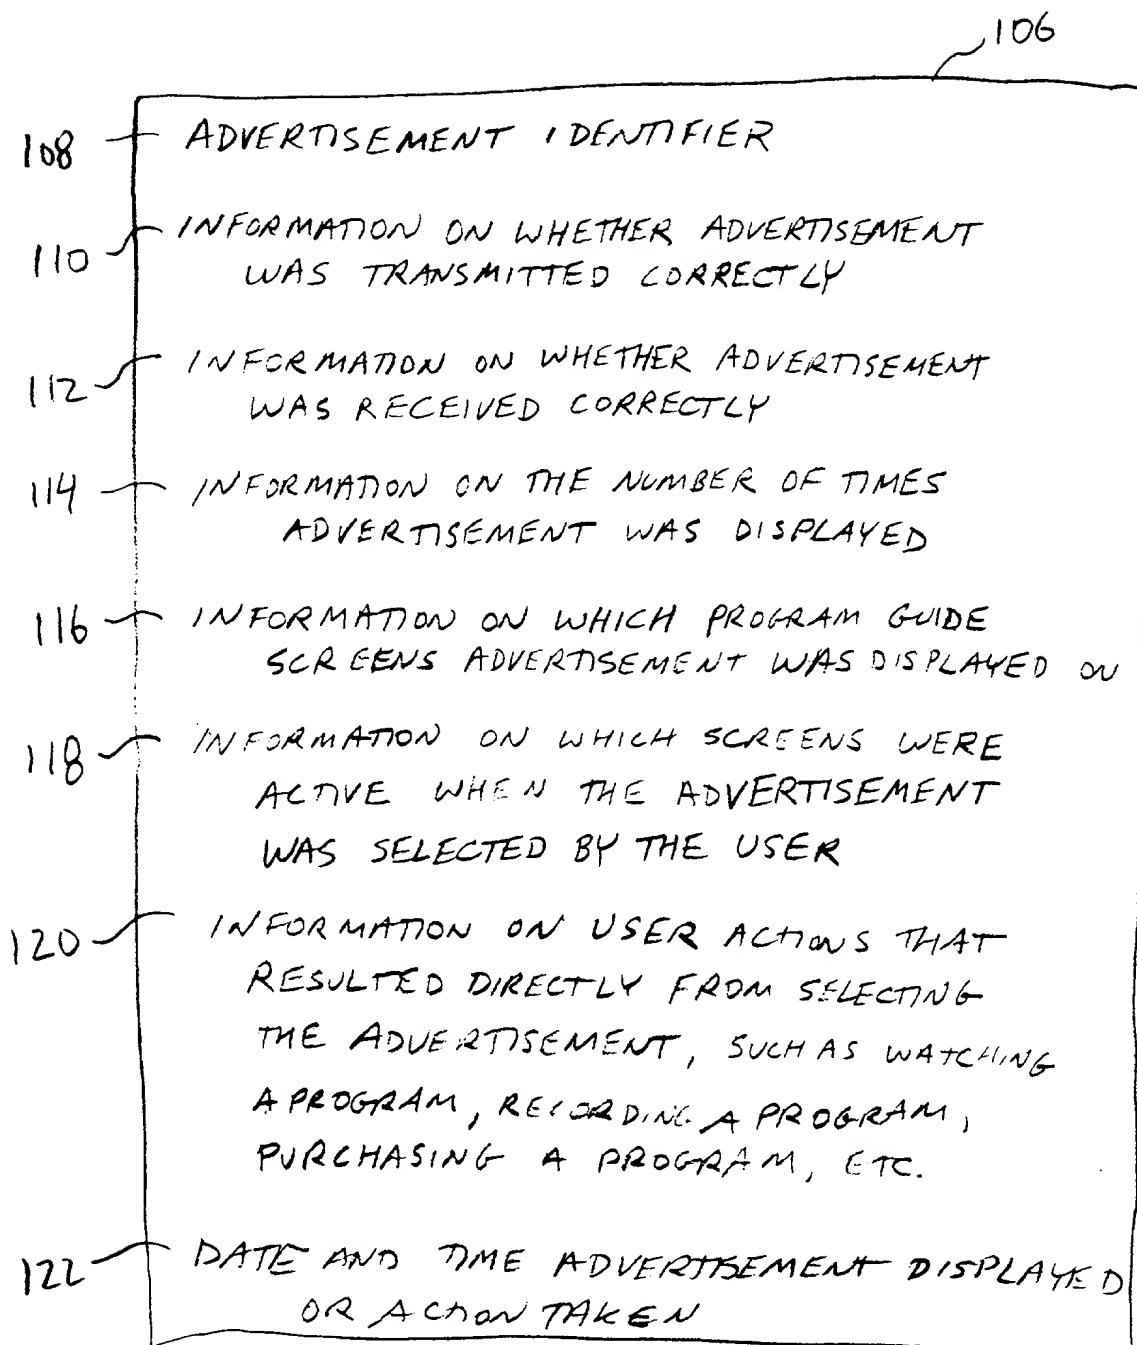 106
108 ADVERTISEMENT IDENTIFIER
110 INFORMATION ON WHETHER ADVERTISEMENT
WAS TRANSMITTED CORRECTLY
112 INFORMATION ON WHETHER ADVERTISEMENT
WAS RECEIVED CORRECTLY
114 INFORMATION ON THE NUMBER OF TIMES
ADVERTISEMENT WAS DISPLAYED
116 INFORMATION ON WHICH PROGRAM GUIDE
SCREENS ADVERTISEMENT WAS DISPLAYED ON
118 INFORMATION ON WHICH SCREENS WERE
ACTIVE WHEN THE ADVERTISEMENT
WAS SELECTED BY THE USER
120 INFORMATION ON USER ACTIONS THAT
RESULTED DIRECTLY FROM SELECTING
THE ADVERTISEMENT, SUCH AS WATCHING
A PROGRAM, RECORDING A PROGRAM,
PURCHASING A PROGRAM, ETC.
122 DATE AND TIME ADVERTISEMENT DISPLAYED
OR ACTION TAKEN